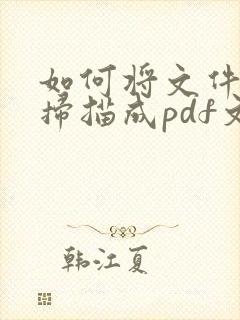 如何将文件
扫描成pdf文
韩江夏